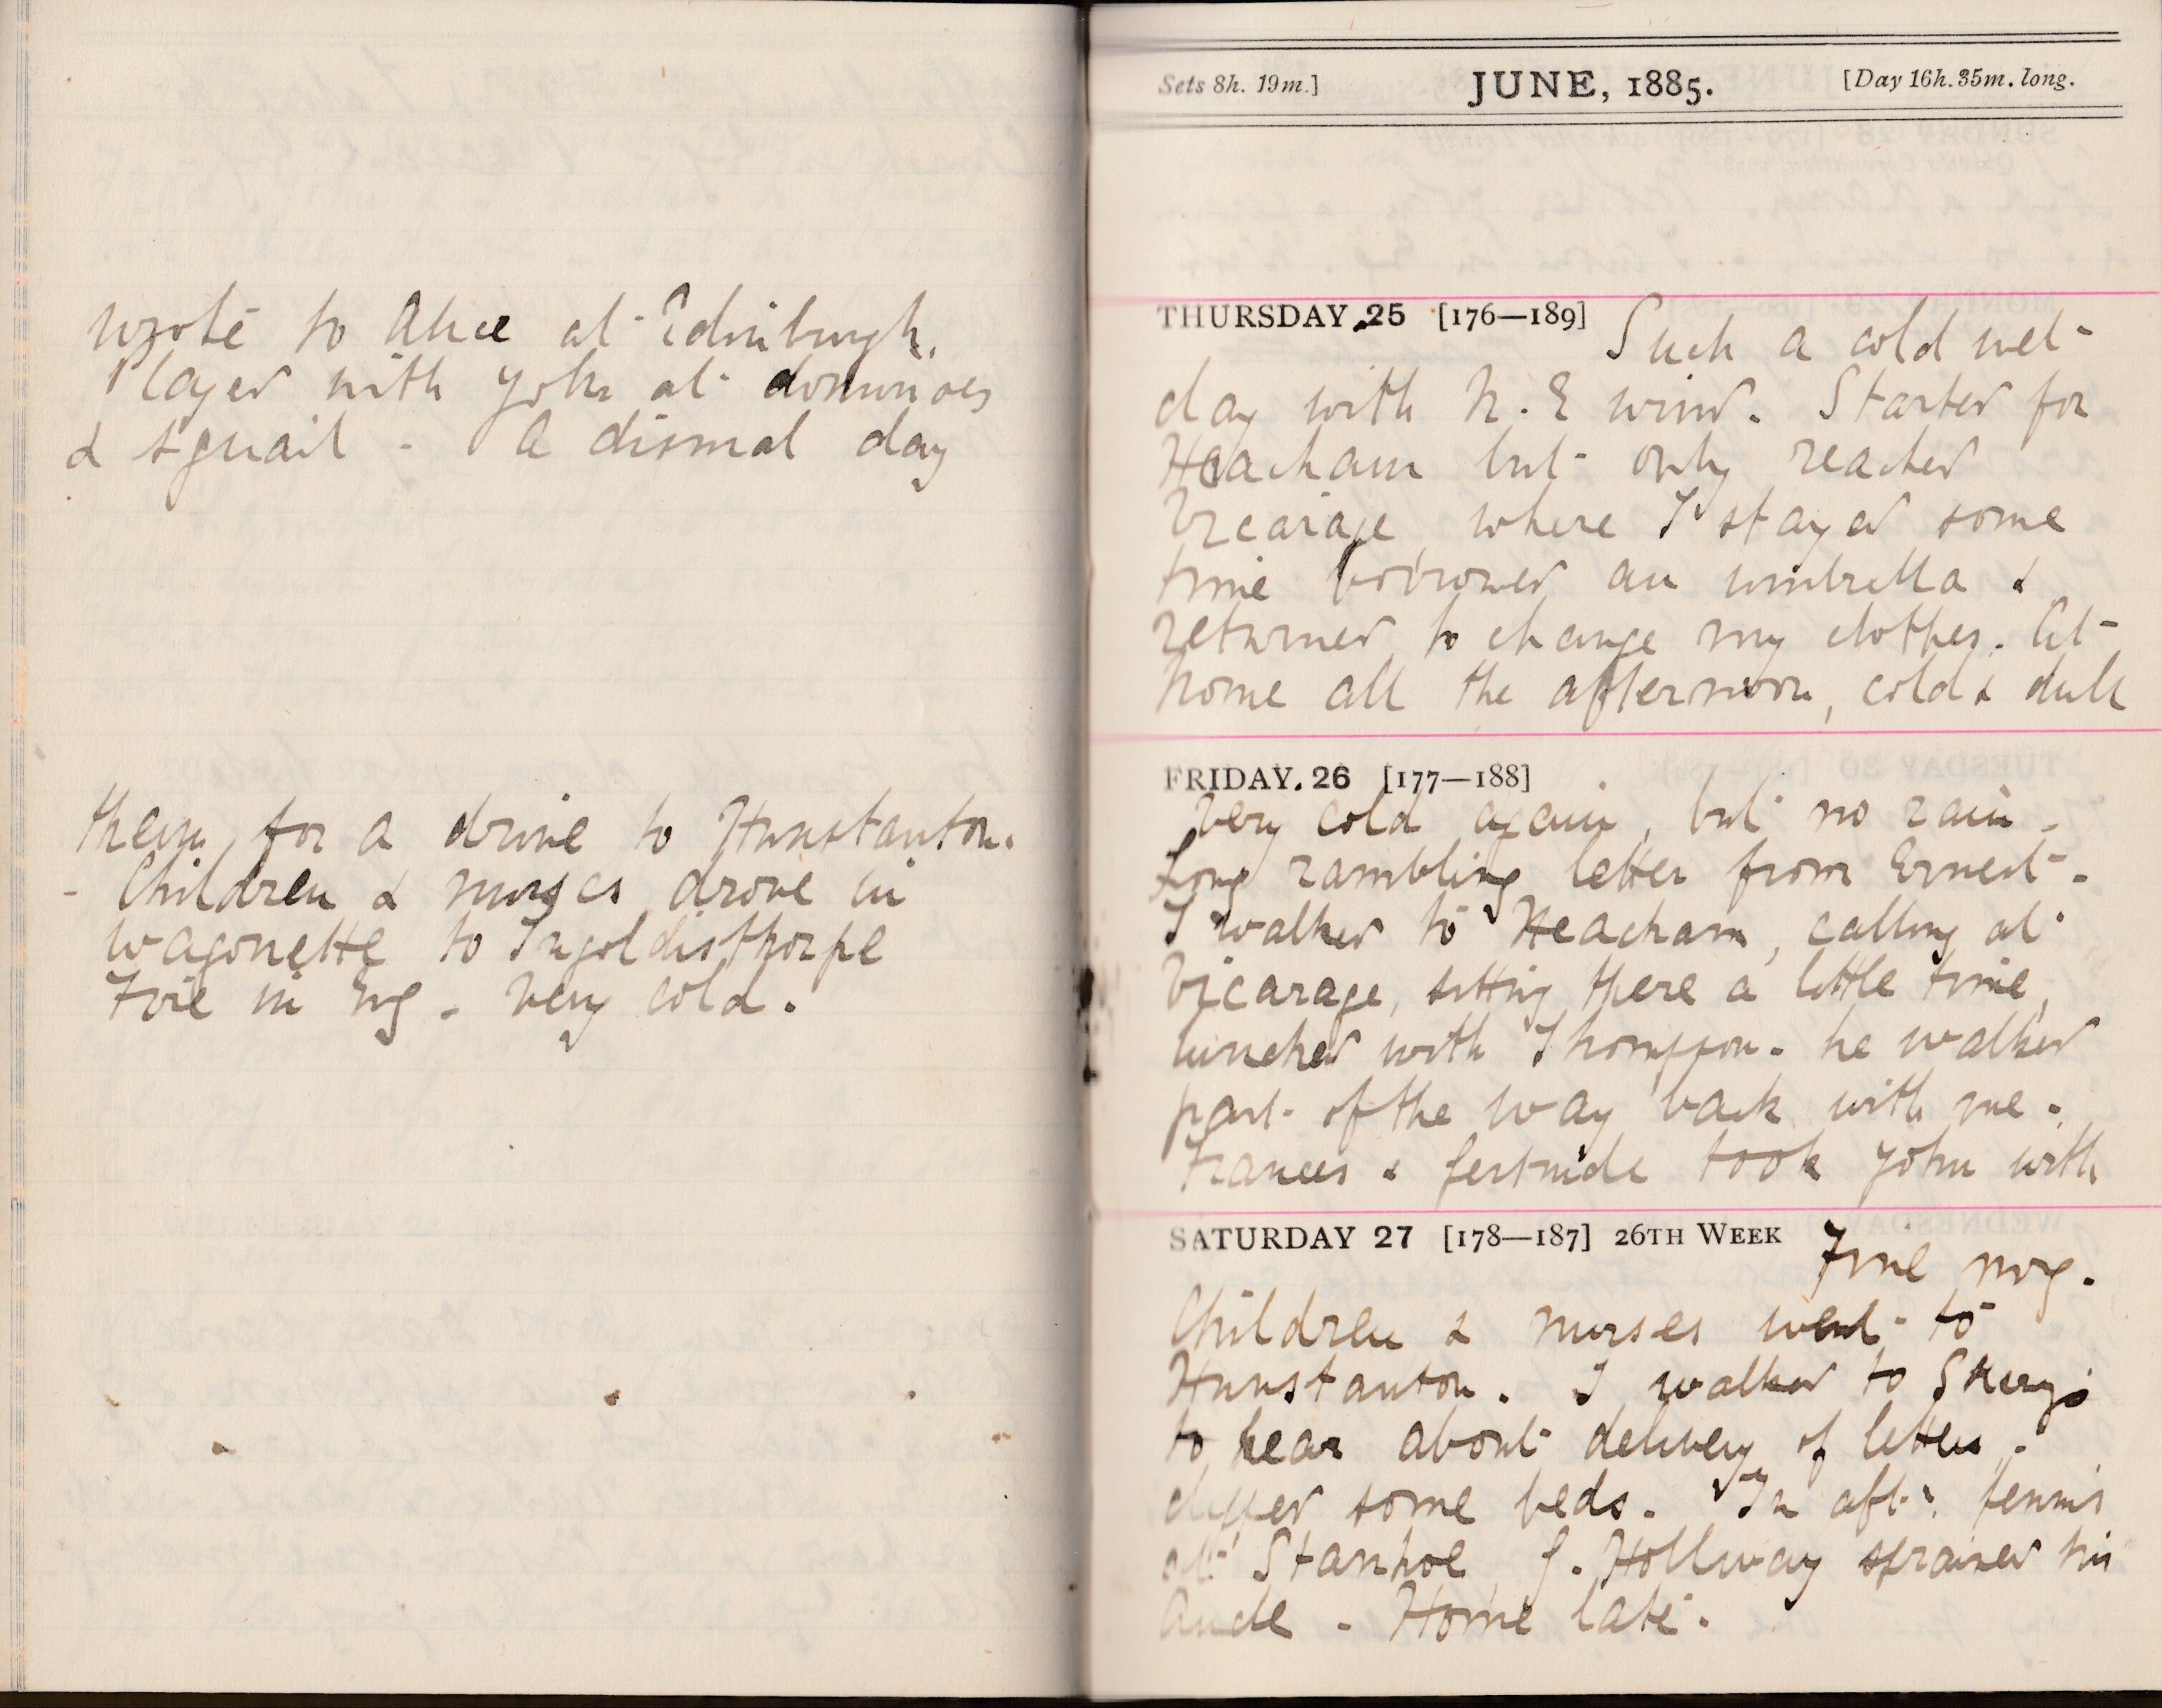 wrote to Alice at Edinburgh.
Played with John at dominoes
& squail - A dismal day
them for a drive to Hunstanton.
- Children & nurses drove in
wagonette to Ingoldisthorpe
Fire in Evg - Very cold.
Sets 8h. 19m.]
JUNE, 1885.
[Day 16h. 35m. long.
THURSDAY 25 [176—189] Such a cold wet
day with N. E wind. Started for
Heacham but only reached
Vicarage where I stayed some
time borrowed an umbrella &
returned to change my clothes. At
home all the afternoon, cold & dull
FRIDAY. 26 [177—188]
Very cold again, but no rain -
Long rambling letter from Ernest -
I walked to Heacham, calling at
Vicarage, sitting there a little time,
lunched with Thompson - he walked
part of the way back with me -
Frances & Gertrude took John with
SATURDAY 27 [178—187] 26TH WEEK Fine mng.
Children & nurses went to
Hunstanton. I walked to
to hear about delivery of letters -
clipped some beds - In aftn. tennis
at Stanhoe, G. Hollway sprained his
ancle - Home late.